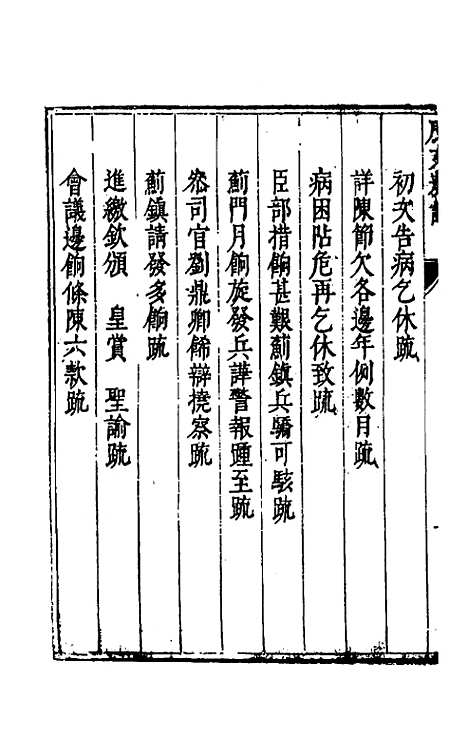 初次告病乞休疏
詳陳節欠各邊年例數目疏
病困阽危再乞休致疏
臣部措餉甚艱薊鎮兵驕可駭疏
薊門月餉旋發兵譁警報踵至疏
叅司官劉鼎卿餙辯撓察疏
薊鎮請發多餉疏
進繳欽頒　皇賞　聖諭疏
會議邊餉條陳六款疏